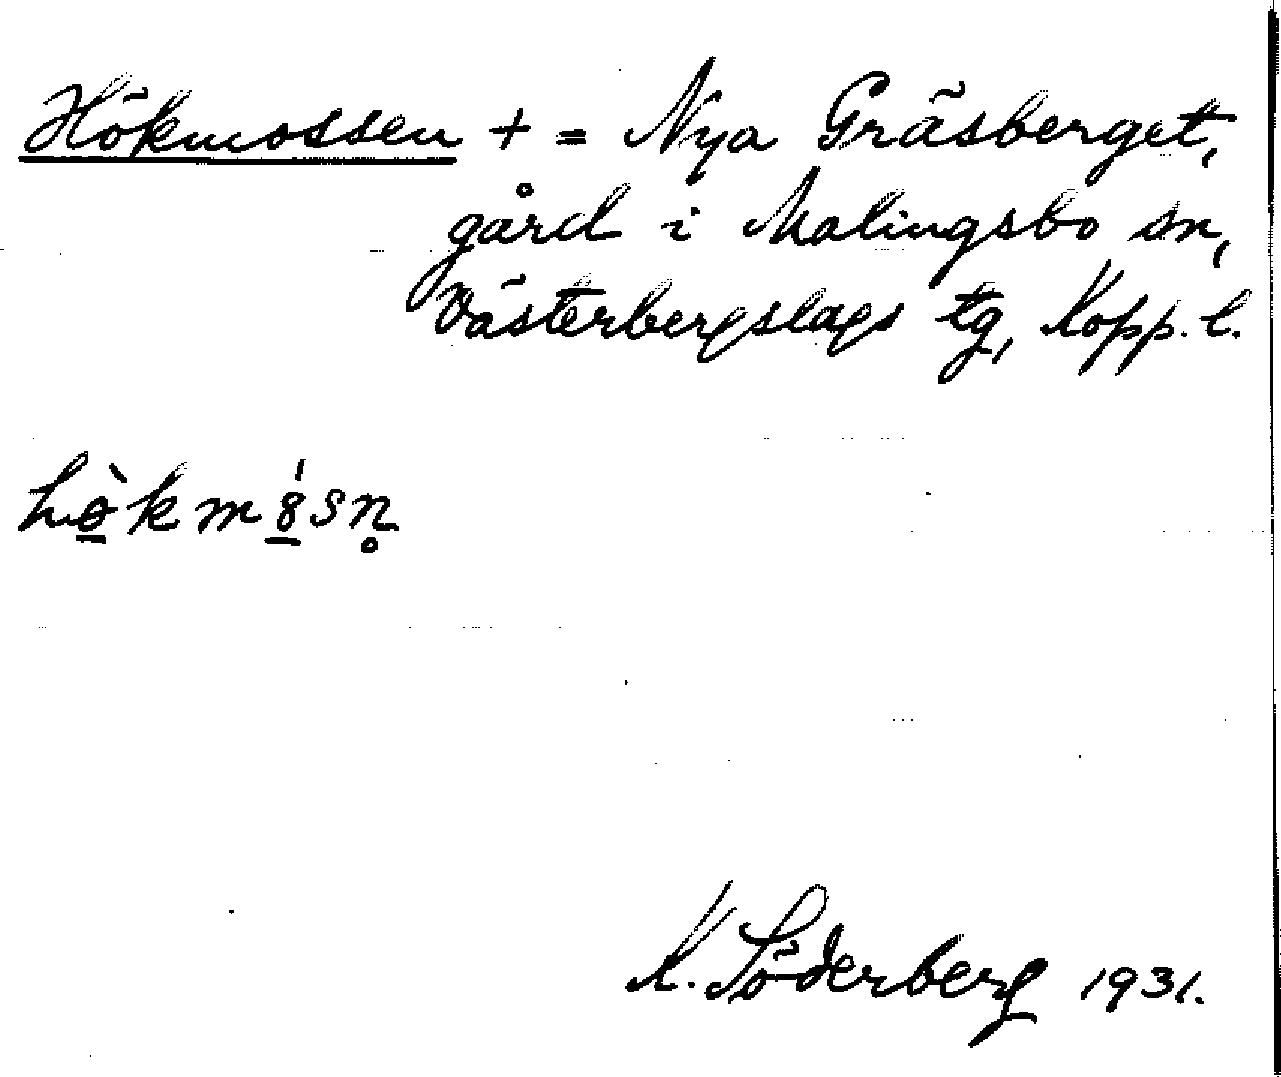 Hökmossen + = Nya Gräsberget,
gård i Malingsbo sn,
Västerbergslags tg, Kopp. l.
hɵ̱̀km8̱́sn̥
K. Söderberg 1931.